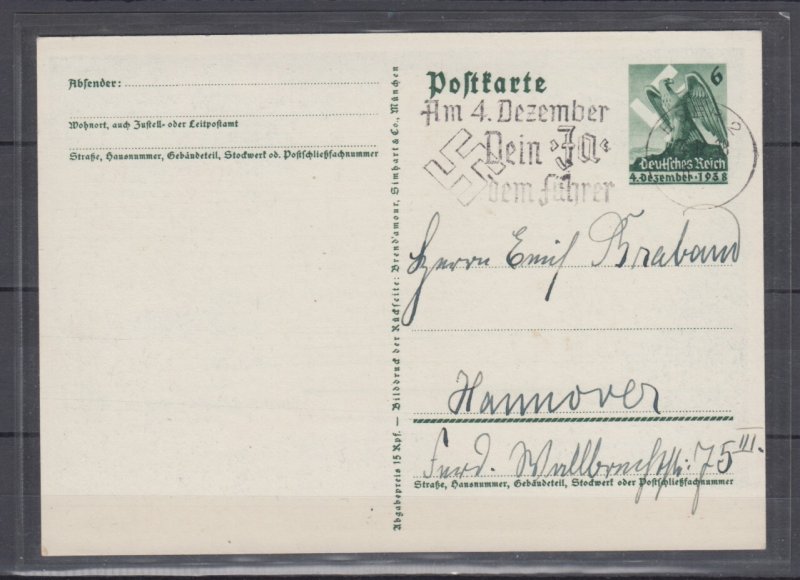 Absender:
Wohnort, auch Zustell- oder Leitpostamt
Straße, Hausnummer, Gebäudeteil, Stockwerk od. Postschließfachnummer
Abgabepreis 15 Rpf. — Bilddruck der Rückseite: Brend'amour, Simhart & Co., München
Postkarte
Am 4. Dezember
Dein ·Ja·
dem Führer
6
Deutsches Reich
4. Dezember · 1938
Herrn Emil Braband
Hannover
Ferd. Wallbrechtstr. 75 III.
Straße, Hausnummer, Gebäudeteil, Stockwerk oder Postschließfachnummer